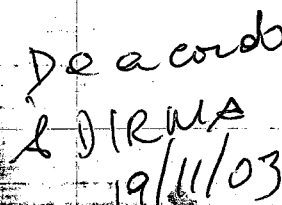 De acordo
À DIRMA
19/11/03